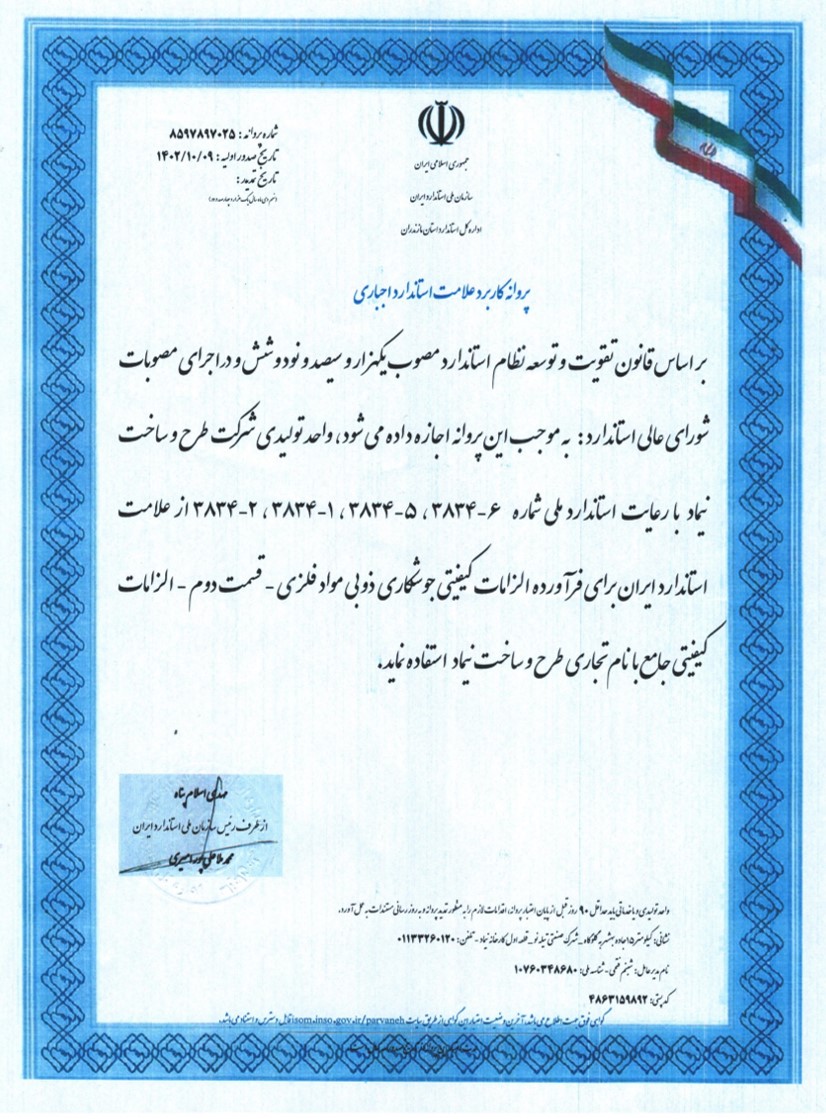 شماره پروانه: ۸۵۹۷۸۹۷۰۲۵
تاریخ صدور اولیه: ۱۴۰۲/۱۰/۰۹
تاریخ تمدید:
جمهوری اسلامی ایران
سازمان ملی استاندارد ایران
اداره کل استاندارد استان مازندران
پروانه کاربرد علامت استاندارد اجباری
بر اساس قانون تقویت و توسعه نظام استاندارد مصوب یکهزار و سیصد و نود و شش و در اجرای مصوبات
شورای عالی استاندارد: به موجب این پروانه اجازه داده می شود، واحد تولیدی شرکت طرح و ساخت
نیماد با رعایت استاندارد ملی شماره ۶-۳۸۳۴ ، ۵-۳۸۳۴ ، ۱-۳۸۳۴ ، ۲-۳۸۳۴ از علامت
استاندارد ایران برای فرآورده الزامات کیفیتی جوشکاری ذوبی مواد فلزی - قسمت دوم - الزامات
کیفیتی جامع با نام تجاری طرح و ساخت نیماد استفاده نماید.
مهدی اسلام پناه
از طرف رئیس سازمان ملی استاندارد ایران
محمد ملاعلی پور امیری
واحد تولیدی و یا خدماتی باید حداقل ۹۰ روز قبل از پایان اعتبار پروانه، اقدامات لازم را به منظور تمدید پروانه و به روز رسانی مستندات به عمل آورد.
نشانی: کیلومتر ۱۵ جاده بهشهر به گلوگاه - شهرک صنعتی تیله نو - قطعه اول کارخانه نیماد - تلفن: ۰۱۱۳۳۲۶۰۱۲۰
نام مدیر عامل: - شناسه ملی: ۱۰۷۶۰۳۴۸۶۸۰
کد پستی: ۴۸۶۳۱۵۹۸۹۲
گواهی فوق جهت اطلاع می باشد، آخرین وضعیت اعتبار این گواهی از طریق سایت isom.inso.gov.ir/parvaneh قابل دسترس و استناد می باشد.